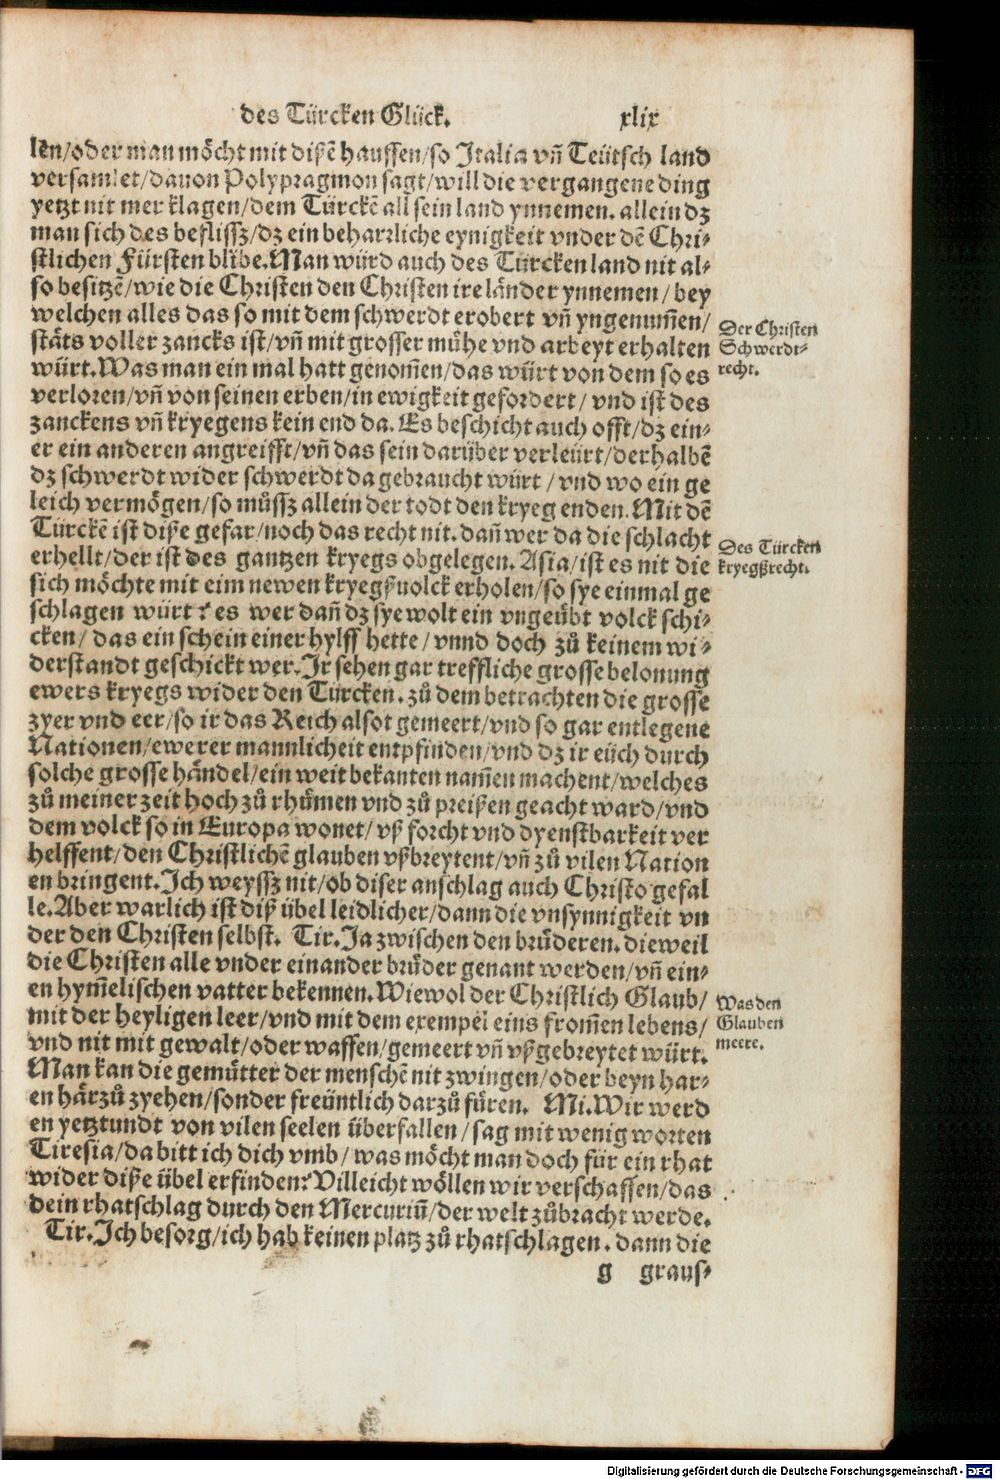 des Türcken Glück. xlix
len/oder man möcht mit dißē hauffen/so Italia vñ Teütsch land
versamlet/dauon Polypragmon sagt/will die vergangene ding
yetzt nit mer klagen/dem Türckē all sein land ynnemen. allein dz
man sich des beflissz/dz ein beharrliche eynigkeit vnder dē Chri-
stlichen Fürsten blibe. Man würd auch des Türcken land nit al-
so besitzē/wie die Christen den Christen ire länder ynnemen/bey
welchen alles das so mit dem schwerdt erobert vñ yngenum̄en/
stäts voller zancks ist/vñ mit grosser mühe vnd arbeyt erhalten
würt. Was man ein mal hatt genom̄en/das würt von dem so es
verloren/vñ von seinen erben/in ewigkeit gefordert/vnd ist des
zanckens vñ kryegens kein end da. Es beschicht auch offt/dz ein-
er ein anderen angreifft/vñ das sein darüber verleürt/derhalbē
dz schwerdt wider schwerdt da gebraucht würt/vnd wo ein ge
leich vermögen/so můssz allein der todt den kryeg enden. Mit dē
Türckē ist diße gefar/noch das recht nit. dañ wer da die schlacht
erhellt/der ist des gantzen kryegs obgelegen. Asia/ist es nit die
sich möchte mit eim newen kryegßuolck erholen/so sye einmal ge
schlagen würt? es wer dañ dz sye wolt ein vngeübt volck schi-
cken/das ein schein einer hylff hette/vnnd doch zů keinem wi-
derstandt geschickt wer. Ir sehen gar treffliche grosse belonung
ewers kryegs wider den Türcken. zů dem betrachten die grosse
zyer vnd eer/so ir das Reich alsot gemeert/vnd so gar entlegene
Nationen/ewerer mannlicheit entpfinden/vnd dz ir eüch durch
solche grosse händel/ein weit bekanten nam̄en machent/welches
zů meiner zeit hoch zů rhümen vnd zů preißen geacht ward/vnd
dem volck so in Europa wonet/vß forcht vnd dyenstbarkeit ver
helffent/den Christlichē glauben vßbreytent/vñ zů vilen Nation
en bringent. Ich weyssz nit/ob diser anschlag auch Christo gefal
le. Aber warlich ist diß übel leidlicher/dann die vnsynnigkeit vn
der den Christen selbst. Tir. Ja zwischen den brüderen. dieweil
die Christen alle vnder einander brüder genant werden/vñ ein-
en hym̄elischen vatter bekennen. Wiewol der Christlich Glaub/
mit der heyligen leer/vnd mit dem exempel eins from̄en lebens/
vnd nit mit gewalt/oder waffen/gemeert vñ vßgebreytet würt.
Man kan die gemütter der menschē nit zwingen/oder beyn har-
en härzů zyehen/sonder freüntlich darzů füren. Mi. Wir werd
en yetztundt von vilen seelen überfallen/sag mit wenig worten
Tiresia/da bitt ich dich vmb/was möcht man doch für ein rhat
wider diße übel erfinden? Villeicht wöllen wir verschaffen/das
dein rhatschlag durch den Mercuriū/der welt zůbracht werde.
Tir. Ich besorg/ich hab keinen platz zů rhatschlagen. dann die
g graus-
Der Christen
Schwerdt-
recht.
Des Türcken
kryegßrecht.
Was den
Glauben
meere.
Digitalisierung gefördert durch die Deutsche Forschungsgemeinschaft - DFG